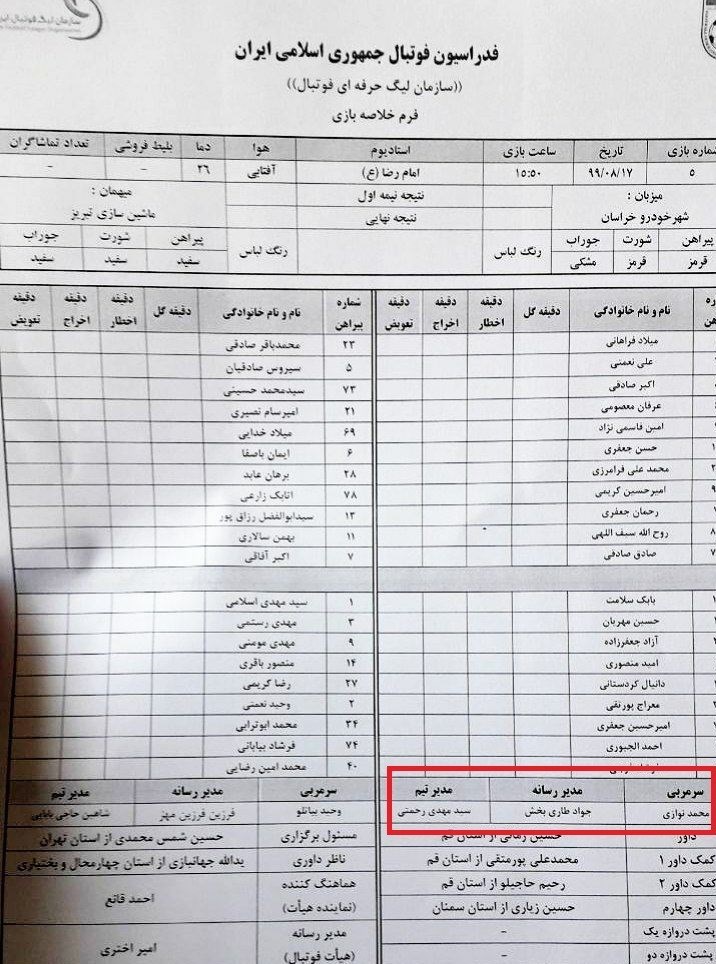 سازمان لیگ فوتبال ایران
فدراسیون فوتبال جمهوری اسلامی ایران
((سازمان لیگ حرفه ای فوتبال))
فرم خلاصه بازی
شماره بازی تاریخ ساعت بازی استادیوم هوا دما بلیط فروشی تعداد تماشاگران
۵ ۹۹/۰۸/۱۷ ۱۵:۵۰ امام رضا (ع) آفتابی ۲۶ - -
میزبان : نتیجه نیمه اول میهمان :
شهرخودرو خراسان نتیجه نهایی ماشین سازی تبریز
پیراهن شورت جوراب رنگ لباس رنگ لباس پیراهن شورت جوراب
قرمز قرمز مشکی سفید سفید سفید
نام و نام خانوادگی دقیقه گل دقیقه اخطار دقیقه اخراج دقیقه تعویض شماره پیراهن نام و نام خانوادگی دقیقه گل دقیقه اخطار دقیقه اخراج دقیقه تعویض
میلاد فراهانی ۲۳ محمدباقر صادقی
علی نعمتی ۵ سیروس صادقیان
اکبر صادقی ۷۳ سیدمحمد حسینی
عرفان معصومی ۲۱ امیرسام نصیری
امین قاسمی نژاد ۶۹ میلاد خدایی
حسن جعفری ۶ ایمان باصفا
محمد علی فرامرزی ۲۸ برهان عابد
امیرحسین کریمی ۷۸ اتابک زارعی
رحمان جعفری ۱۳ سیدابوالفضل رزاق پور
روح الله سیف اللهی ۱۱ بهمن سالاری
صادق صادقی ۷ اکبر آفاقی
بابک سلامت ۱ سید مهدی اسلامی
حسین مهربان ۳ مهدی رستمی
آزاد جعفرزاده ۹ مهدی مومنی
امید منصوری ۱۴ منصور باقری
دانیال کردستانی ۲۷ رضا کریمی
معراج پورتقی ۲ وحید نعمتی
امیرحسین جعفری ۳۴ محمد ابوترابی
احمد الجبوری ۷۴ فرشاد بیاباتی
۴۰ محمد امین رضایی
سرمربی مدیر رسانه مدیر تیم سرمربی مدیر رسانه مدیر تیم
محمد نوازی جواد طاری بخش سید مهدی رحمتی وحید بیاتلو فرزین فرزین مهر شاهین حاجی بابایی
داور حسین زمانی از استان قم مسئول برگزاری حسین شمس محمدی از استان تهران
کمک داور ۱ محمدعلی پورمتقی از استان قم ناظر داوری یدالله جهانبازی از استان چهارمحال و بختیاری
کمک داور ۲ رحیم حاجیلو از استان قم هماهنگ کننده احمد قانع
داور چهارم حسین زیاری از استان سمنان (نماینده هیأت)
پشت دروازه یک - مدیر رسانه امیر اختری
پشت دروازه دو - (هیأت فوتبال)